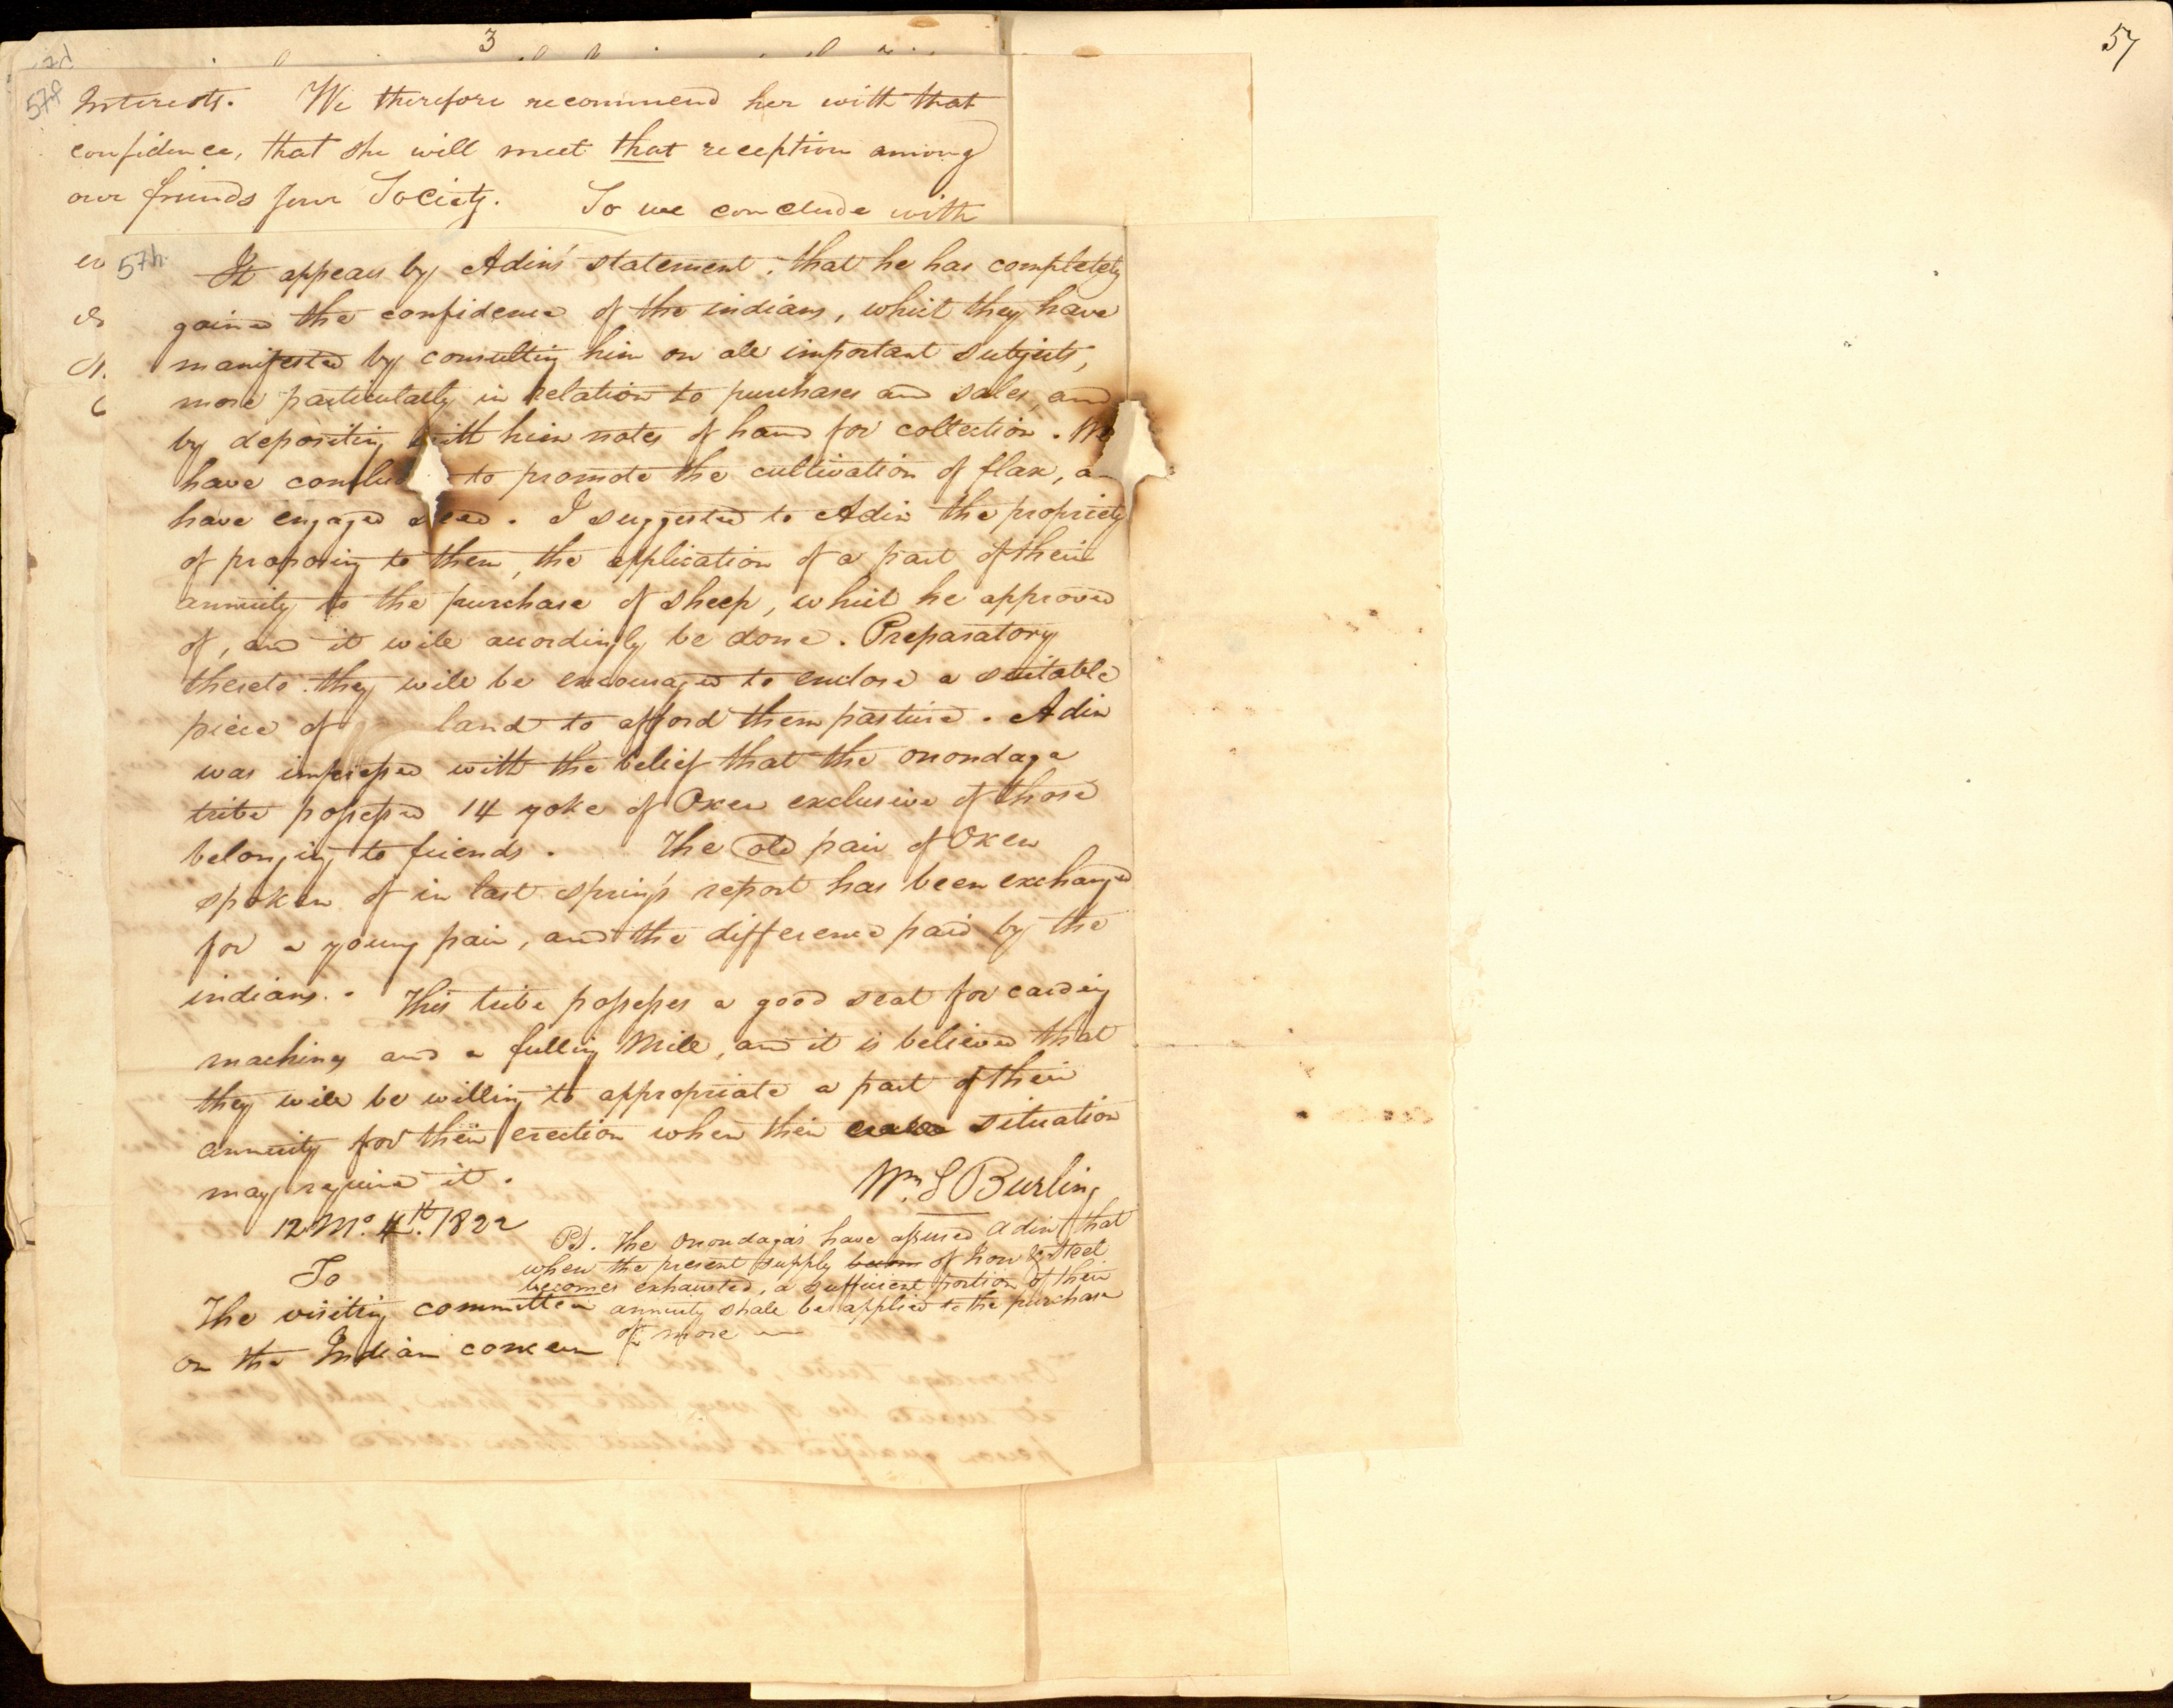 57
3
57f
Interests. We therefore recommend her with that
confidence, that she will meet that reception among
our friends your Society. So we conclude with
57h
It appears by Adin's statement, that he has completely
gained the confidence of the indians, which they have
manifested by consulting him on all important subjects,
more particularly in relation to purchases and sales, and
by depositing with him notes of hand for collection. We
have conclud to promote the cultivation of flax, a
have engaged seed. I suggested to Adin the propriety
of proposing to them, the application of a part of their
annuity to the purchase of sheep, which he approved
of, and it will accordingly be done. Preparatory
thereto they will be encouraged to enclose a suitable
piece of land to afford them pasture. Adin
was impressed with the belief that the onondaga
tribe possessed 14 yoke of Oxen exclusive of those
belonging to friends. The old pair of Oxen
spoken of in last spring's report has been exchanged
for a young pair, and the difference paid by the
indians. This tribe possesses a good seat for carding
machines and a fulling Mill, and it is believed that
they will be willing to appropriate a part of their
annuity for their erection when their situation
may require it.
Wm. S Burling
12 Mo. 4th. 1822
To
The visiting committee
on the Indian concern
PS. The Onondagas have assured Adin that
when the present supply of Iron & Steel
becomes exhausted, a sufficient portion of their
annuity shall be applied to the purchase
of more